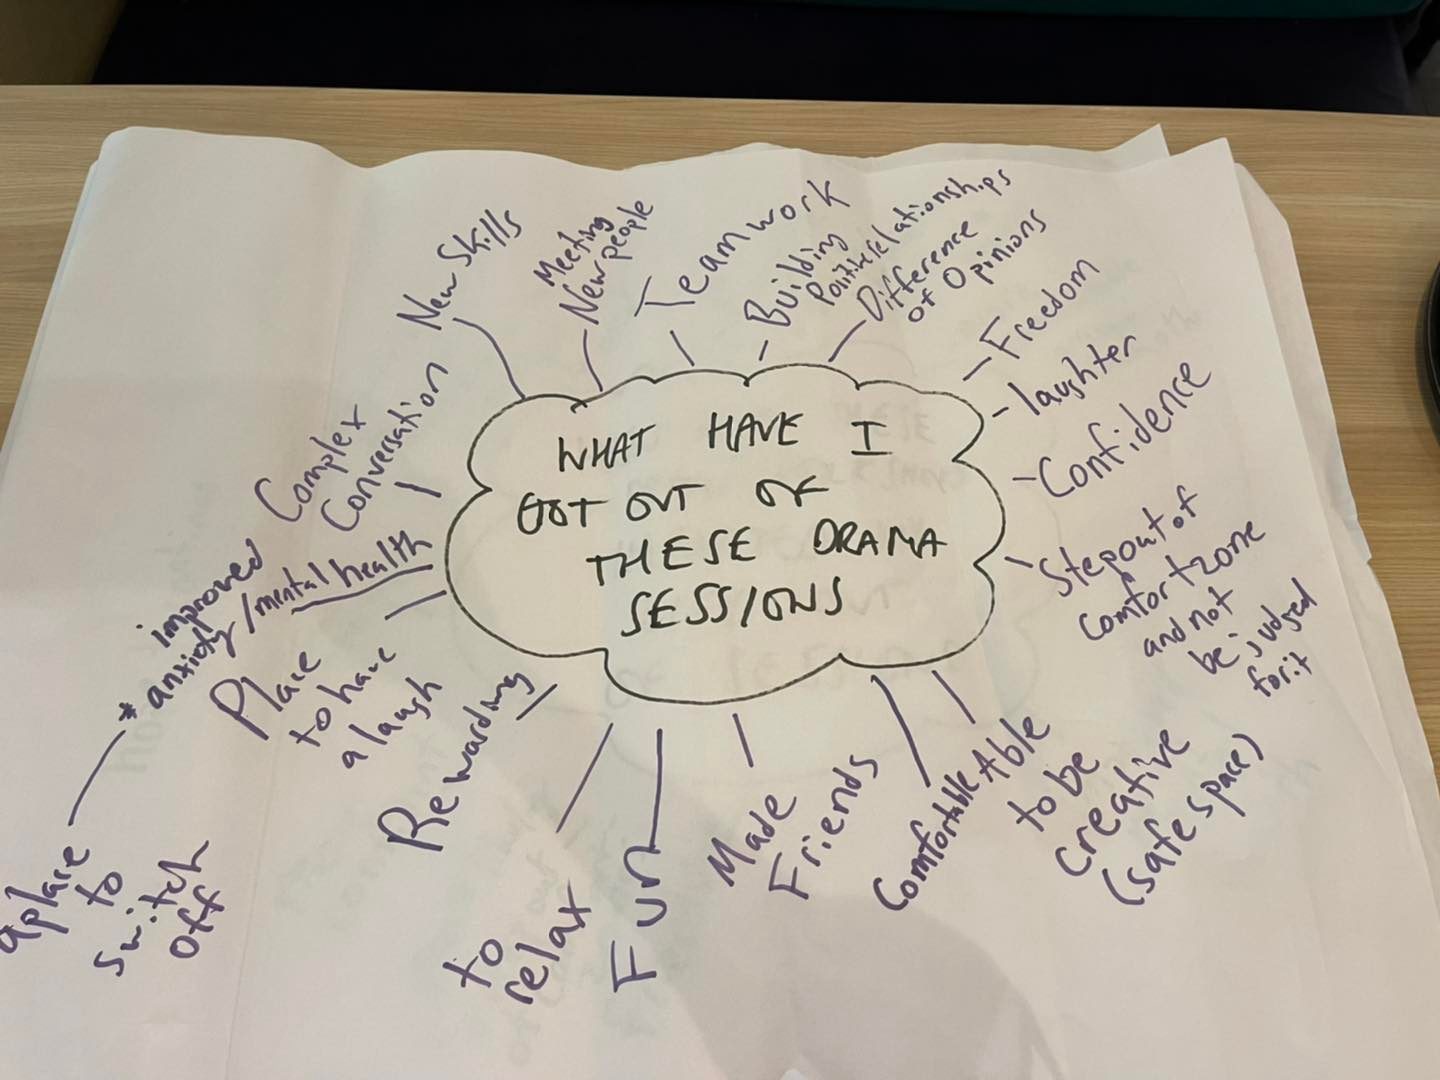 WHAT HAVE I
GOT OUT OF
THESE DRAMA
SESSIONS
New Skills
Meeting
New people
Teamwork
Building
Positive relationships
Difference
of Opinions
Freedom
laughter
Confidence
Step out of
comfort zone
and not
be judged
for it
Able
to be
creative
(safe space)
Comfortable
Made
Friends
Fun
to
relax
Rewarding
Place
to have
a laugh
improved
* anxiety/mental health
a place
to
switch
off
Complex
Conversation